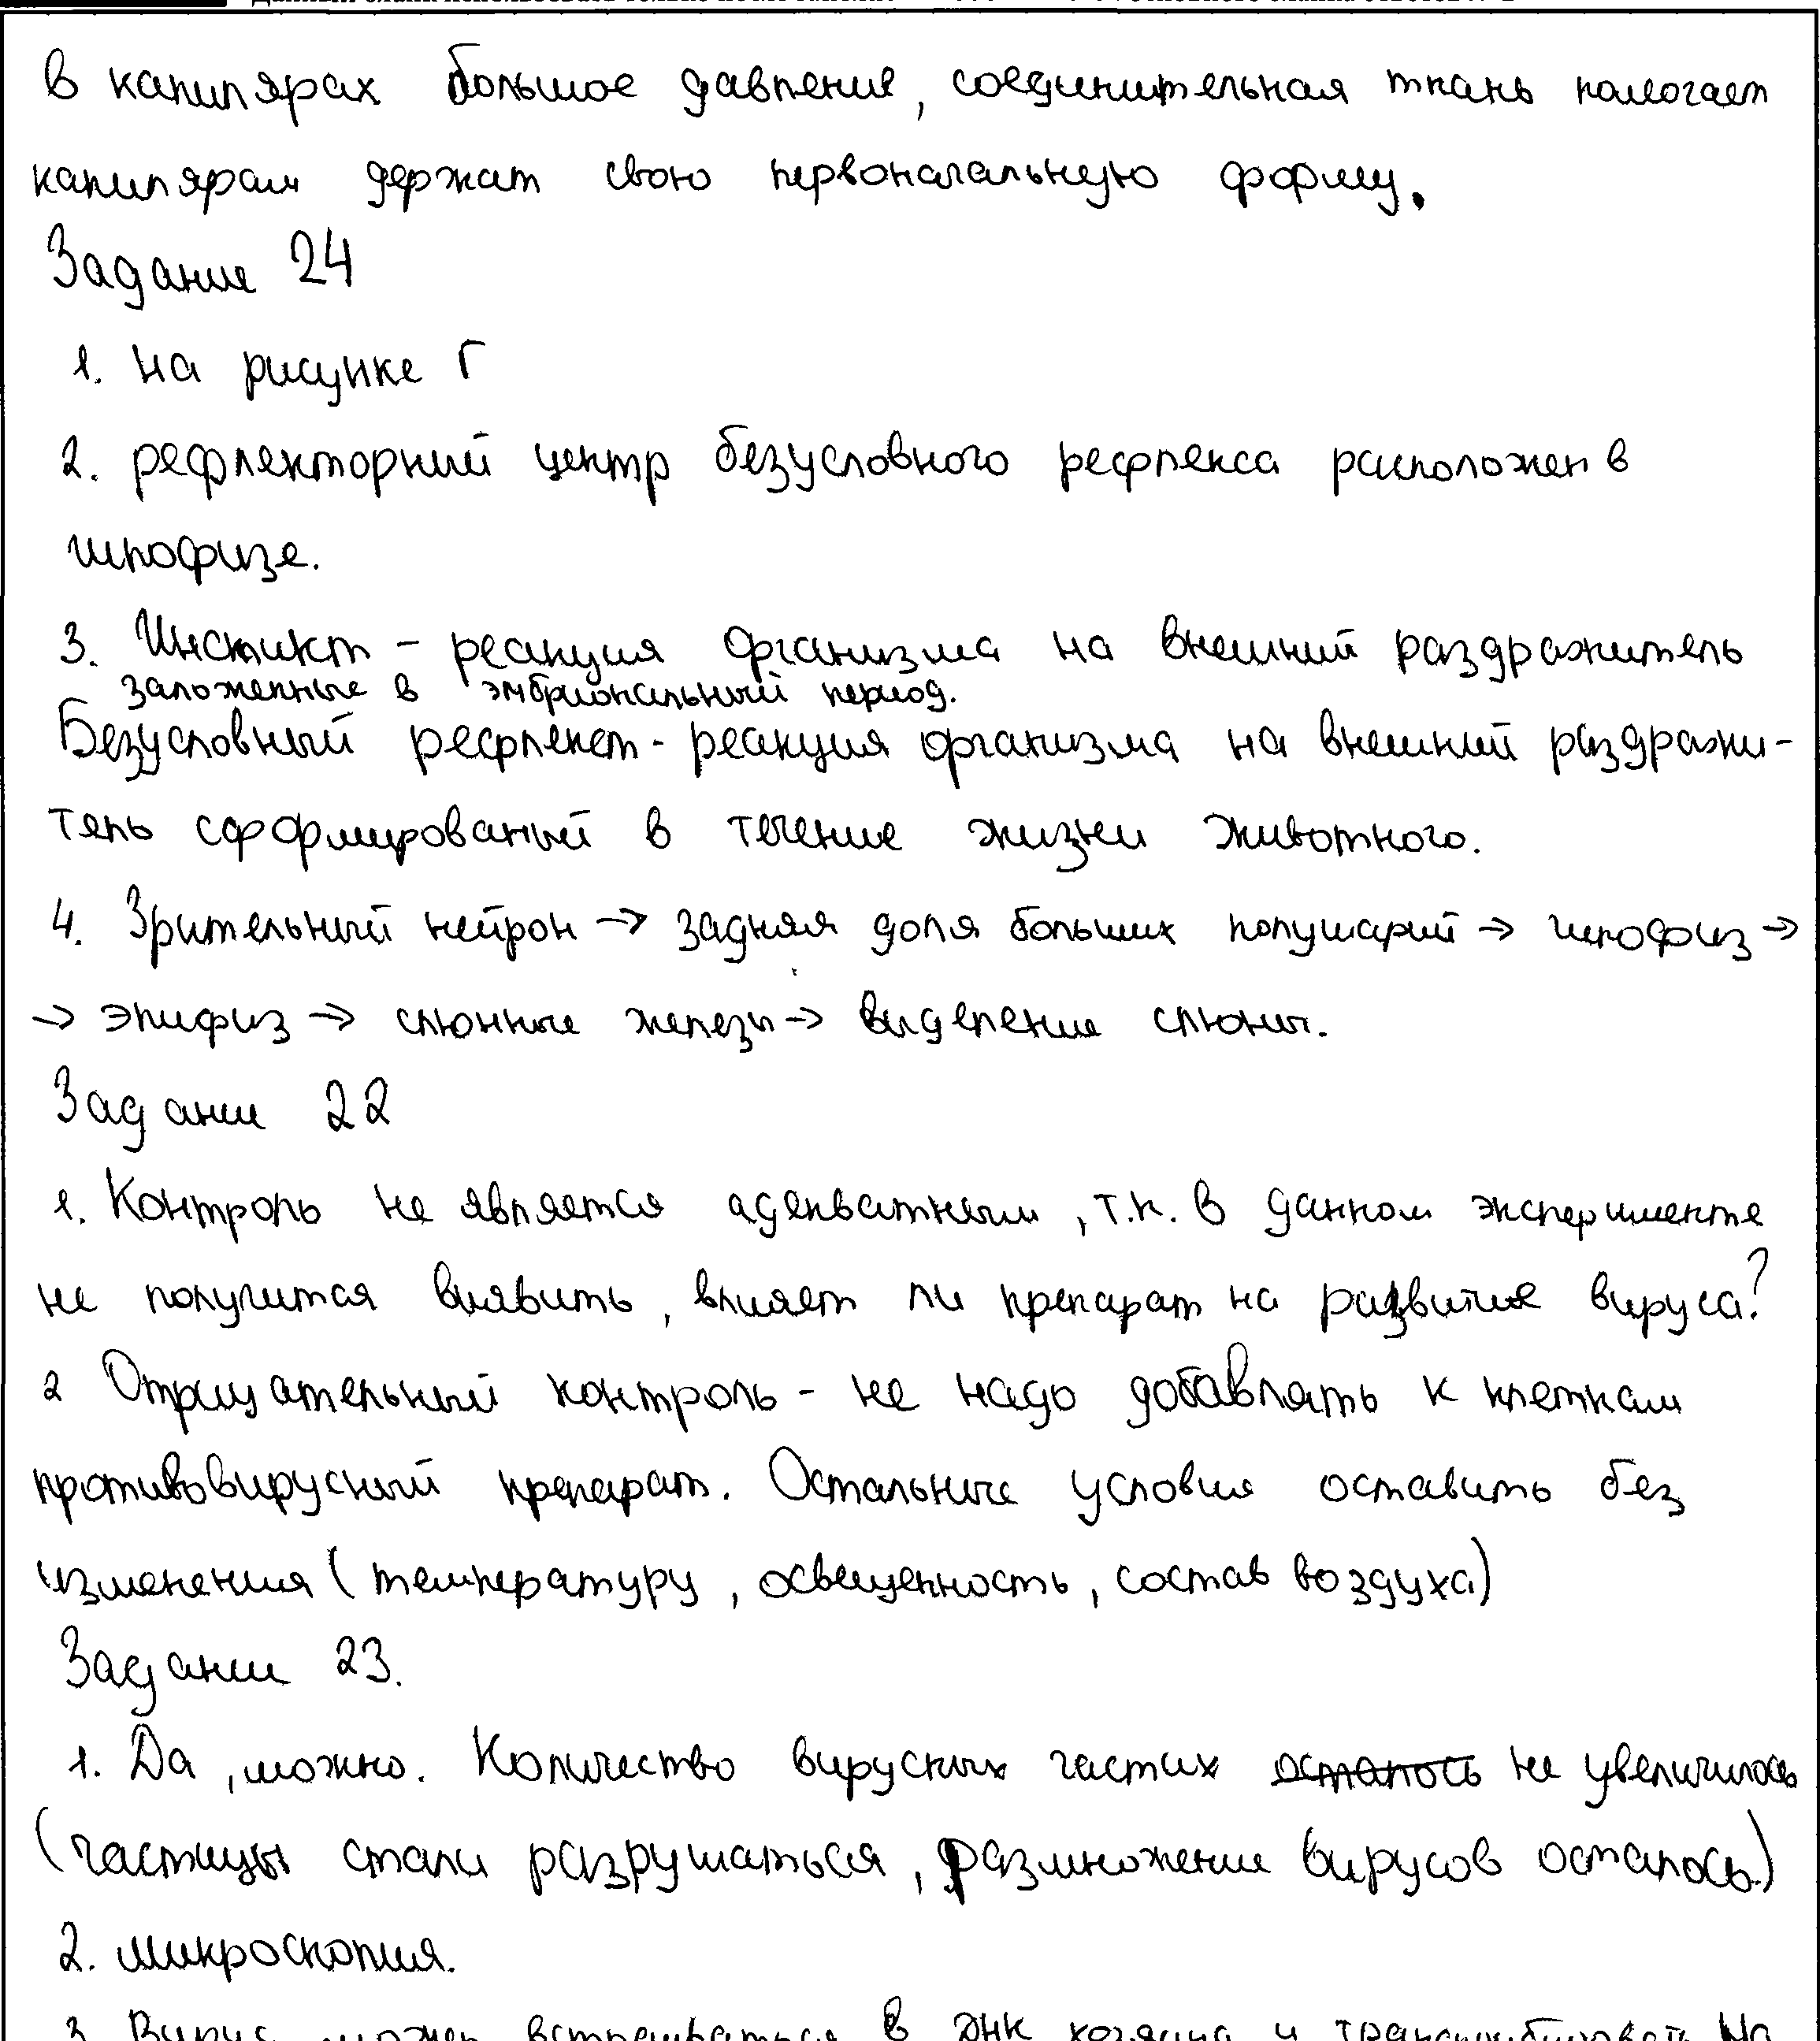 в капилярах большое давление, соединительная ткань помогает
капилярам держат свою первоначальную форму.
Задание 24
1. на рисунке Г
2. рефлекторний центр безусловного рефлекса расположен в
гипофизе.
3. Инстикт - реакция организма на внешний раздражитель
заложенные в эмбриональный период.
Безусловный рефлекст - реакция организма на внешний раздражи-
тель сфформированый в течение жизни животного.
4. Зрительный нейрон → задняя доля больших полушарий → гипофиз →
→ эпифиз → слюнные железы → виделение слюны.
Задание 22
1. Контроль не является адекватным, т.к. в данном эксперименте
не получится виявить, влияет ли препарат на развитие вируса?
2 Отрицательный контроль - не надо добавлять к клеткам
противовирусный препарат. Остальные условия оставить без
изменения (температуру, освещенность, состав воздуха)
Задание 23.
1. Да, можно. Количество вирусних частих осталось не увеличилось
(частицы стали разрушаться, размножение вирусов осталось.)
2. микроскопия.
3 Вирус может встраиваться в ДНК хозяина и транскрибировать на